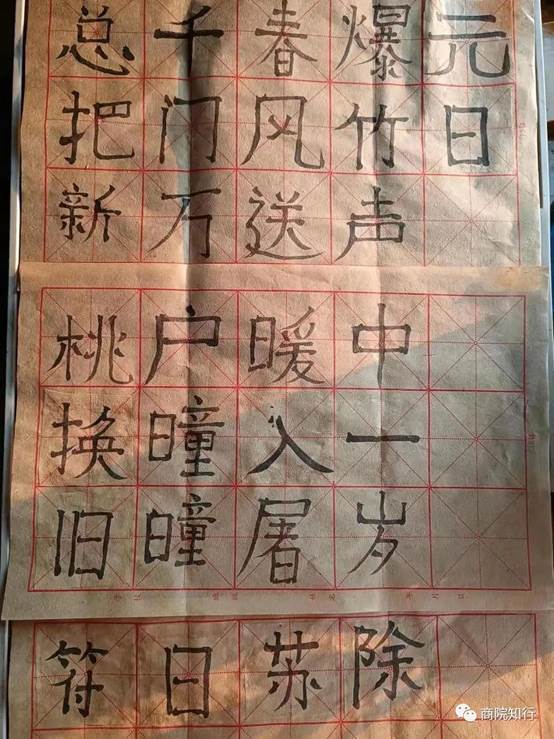 元日
爆竹声中一岁除
春风送暖入屠苏
千门万户曈曈日
总把新桃换旧符
商院知行